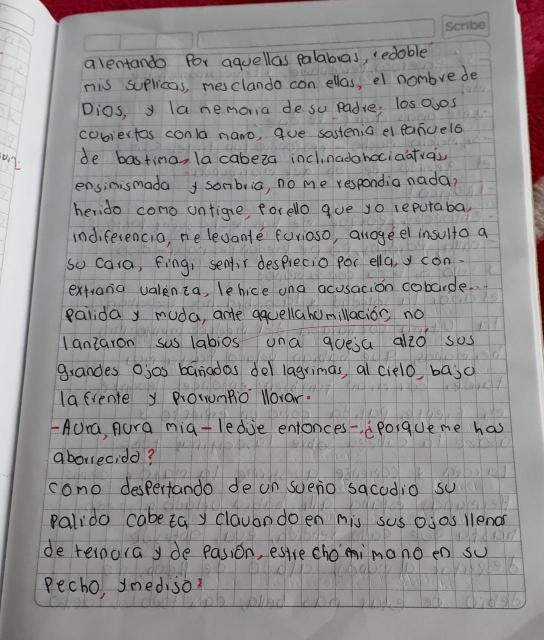 Scribe
alentando Por aquellas palabras, redoble
mis suplicas, mesclando con ellas, el nombre de
Dios, y la memoria de su Padre; los ojos
cubiertos con la mano, que sostenia el pañuelo
de bastima, la cabeza inclinado hacia atras,
ensimismada y sombria, no me respondia nada,
herido como un tigre, Por ello que yo reputaba,
indiferencia, me levanté furioso, arrogé el insulto a
su cara, fingi sentir desprecio por ella, y con-
extraña valenza, le hice una acusación cobarde...
palida y muda, ante aquella humillación, no
lanzaron sus labios una queja alzó sus
grandes ojos bañados del lagrimas, al cielo, bajo
la frente y Prorrumpió llorar.
-Aura, Aura mia-le dije entonces-¿porque me has
aborrecido?
como despertando de un sueño sacudio su
palido cabeza y clavando en mis sus ojos llenos
de ternura y de Pasión, estrecho mi mano en su
pecho, y me dijo: